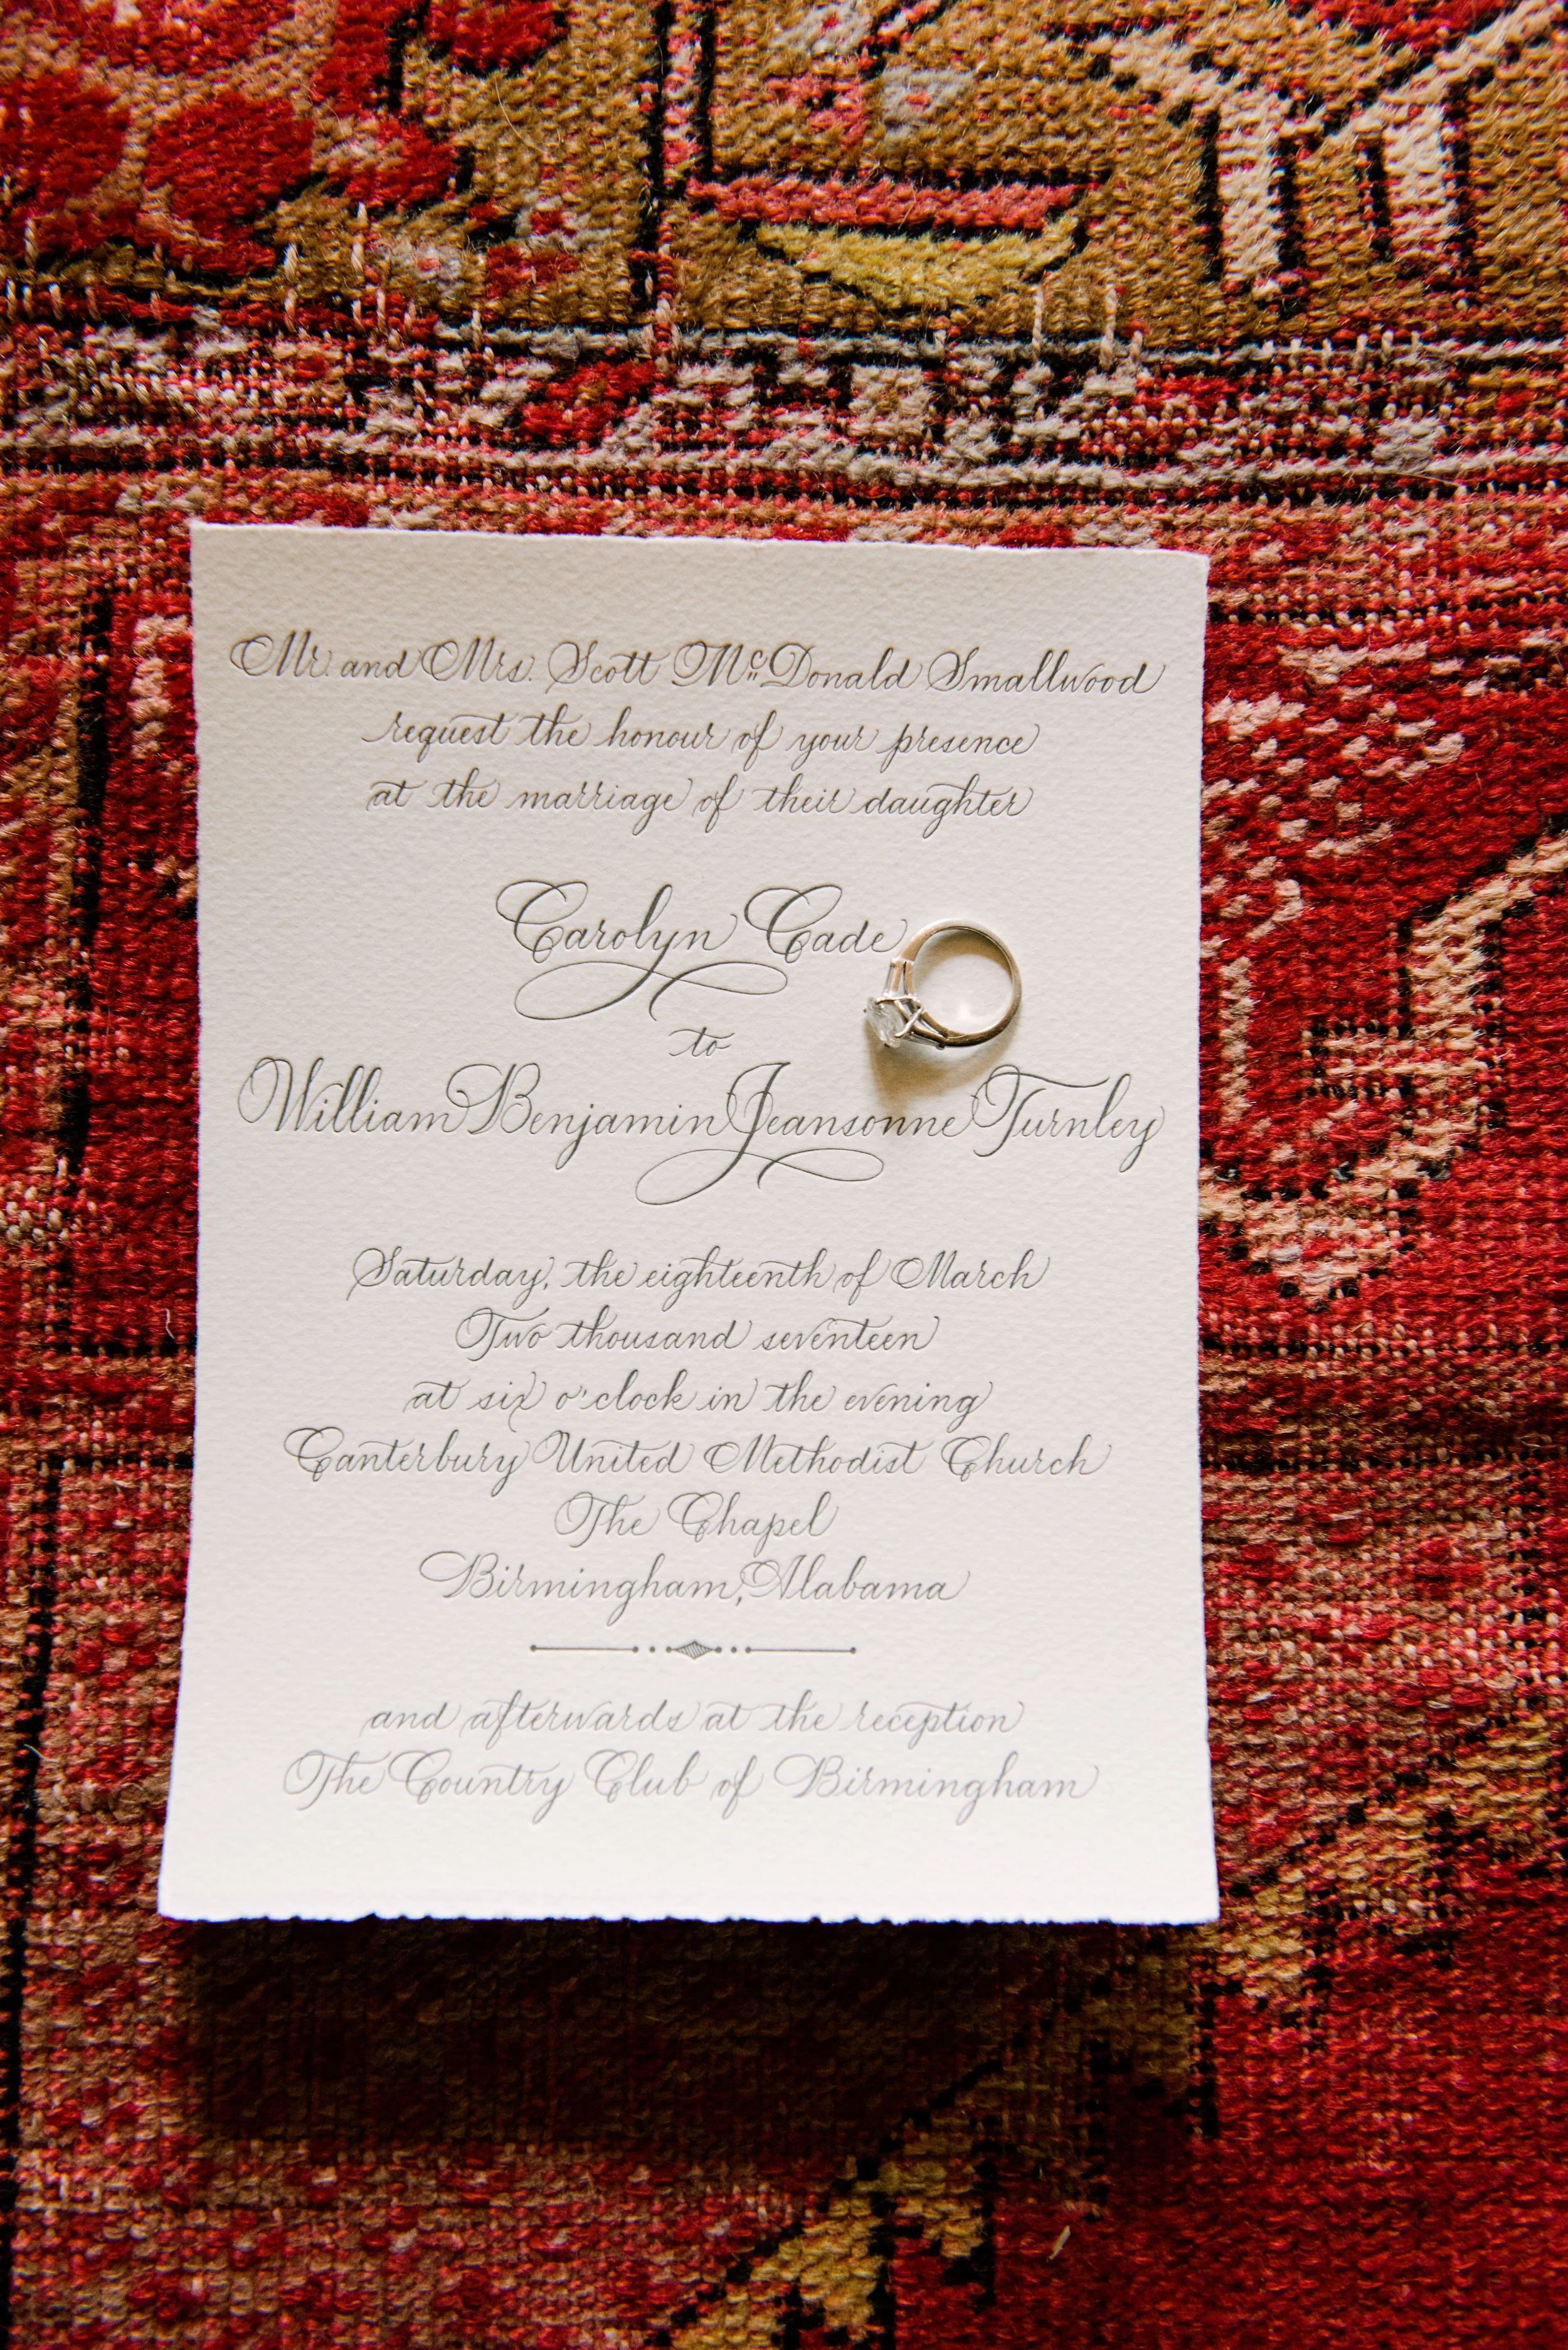 Mr. and Mrs. Scott McDonald Smallwood
request the honour of your presence
at the marriage of their daughter
Carolyn Cade
to
William Benjamin Jeansonne Turnley
Saturday, the eighteenth of March
Two thousand seventeen
at six o'clock in the evening
Canterbury United Methodist Church
The Chapel
Birmingham, Alabama
and afterwards at the reception
The Country Club of Birmingham